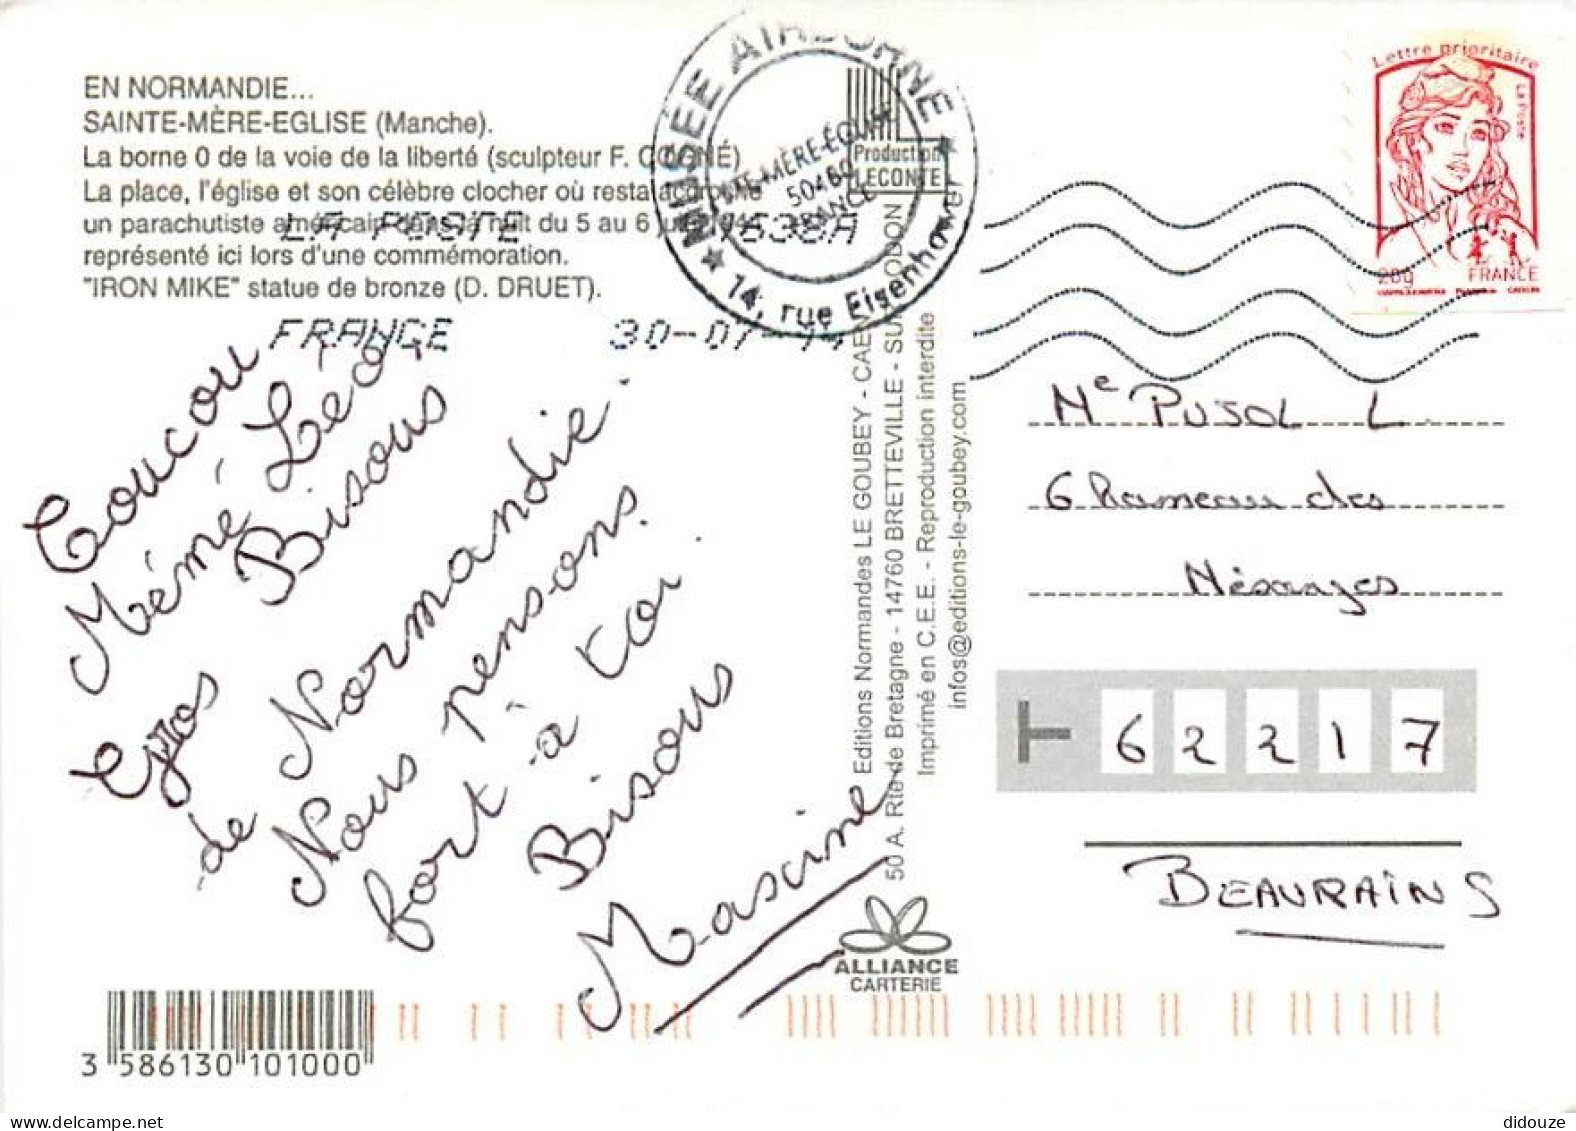 EN NORMANDIE...
SAINTE-MÈRE-EGLISE (Manche).
La borne 0 de la voie de la liberté (sculpteur F. COGNÉ)
La place, l'église et son célèbre clocher où resta accroché
un parachutiste américain dans la nuit du 5 au 6 juin 1944
représenté ici lors d'une commémoration.
"IRON MIKE" statue de bronze (D. DRUET).
MUSÉE AIRBORNE
14, rue Eisenhower
STE-MÈRE-ÉGLISE
50480
FRANCE
Production
LECONTE
LA POSTE
16380A
FRANCE
30-07-14
Lettre prioritaire
La Poste
20g
FRANCE
Coucou
Mémé Léa
Bisous
Gros
de Normandie.
Nous pensons
fort à toi.
Bisous
Maxine
Editions Normandes LE GOUBEY - CAEN
50 A. Rte de Bretagne - 14760 BRETTEVILLE - SUR - ODON
Imprimé en C.E.E. - Reproduction interdite
infos@editions-le-goubey.com
ALLIANCE
CARTERIE
Me PUJOL L.
6 Hameau des
Mésanges
62217
BEAURAINS
3 586130 101000
didouze